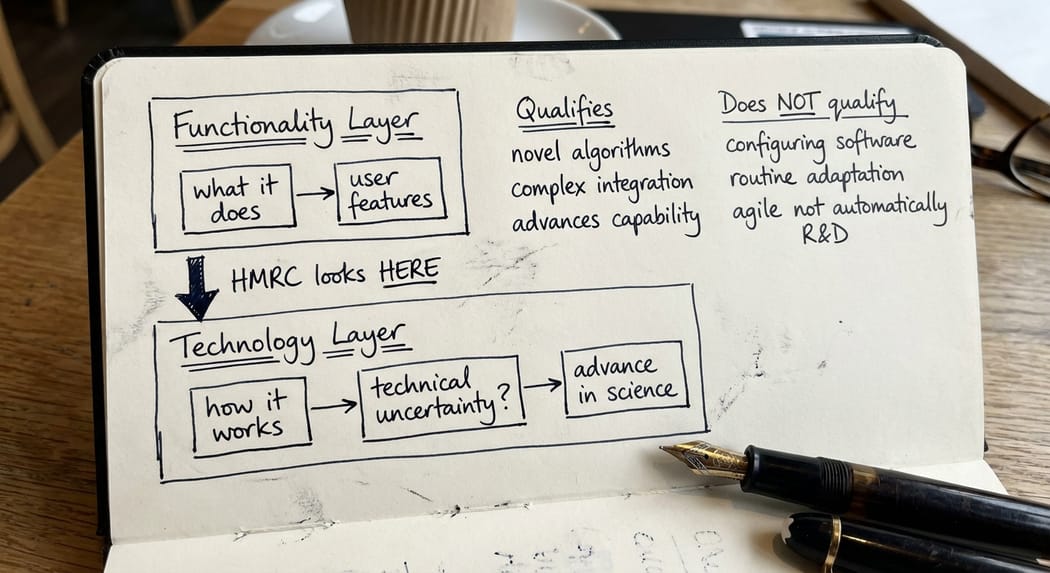 Functionality Layer
what it
does
user
features
HMRC looks HERE
Technology Layer
how it
works
technical
uncertainty?
advance
in science
Qualifies
novel algorithms
complex integration
advances capability
Does NOT qualify
configuring software
routine adaptation
agile not automatically
R&D